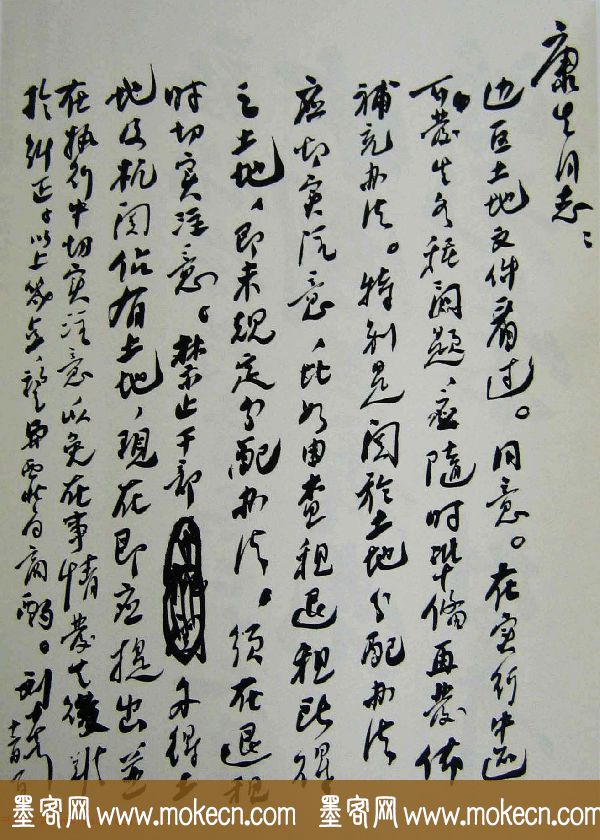 康生同志：
边区土地文件看过。同意。在实行中还
可发生各种问题，应随时准备再发
补充办法。特别是关于土地分配办法
应切实注意，比如由查租退租所得
之土地，即未规定分配办法。须在退租
时切实注意。禁止干部 多得土
地及机关佔有土地，现在即应提出並
在执行中切实注意以免在事情發生後难
於纠正。以上几点，望 商酌。刘少奇
墨客网 www.mokecn.com 墨客网 www.mokecn.com